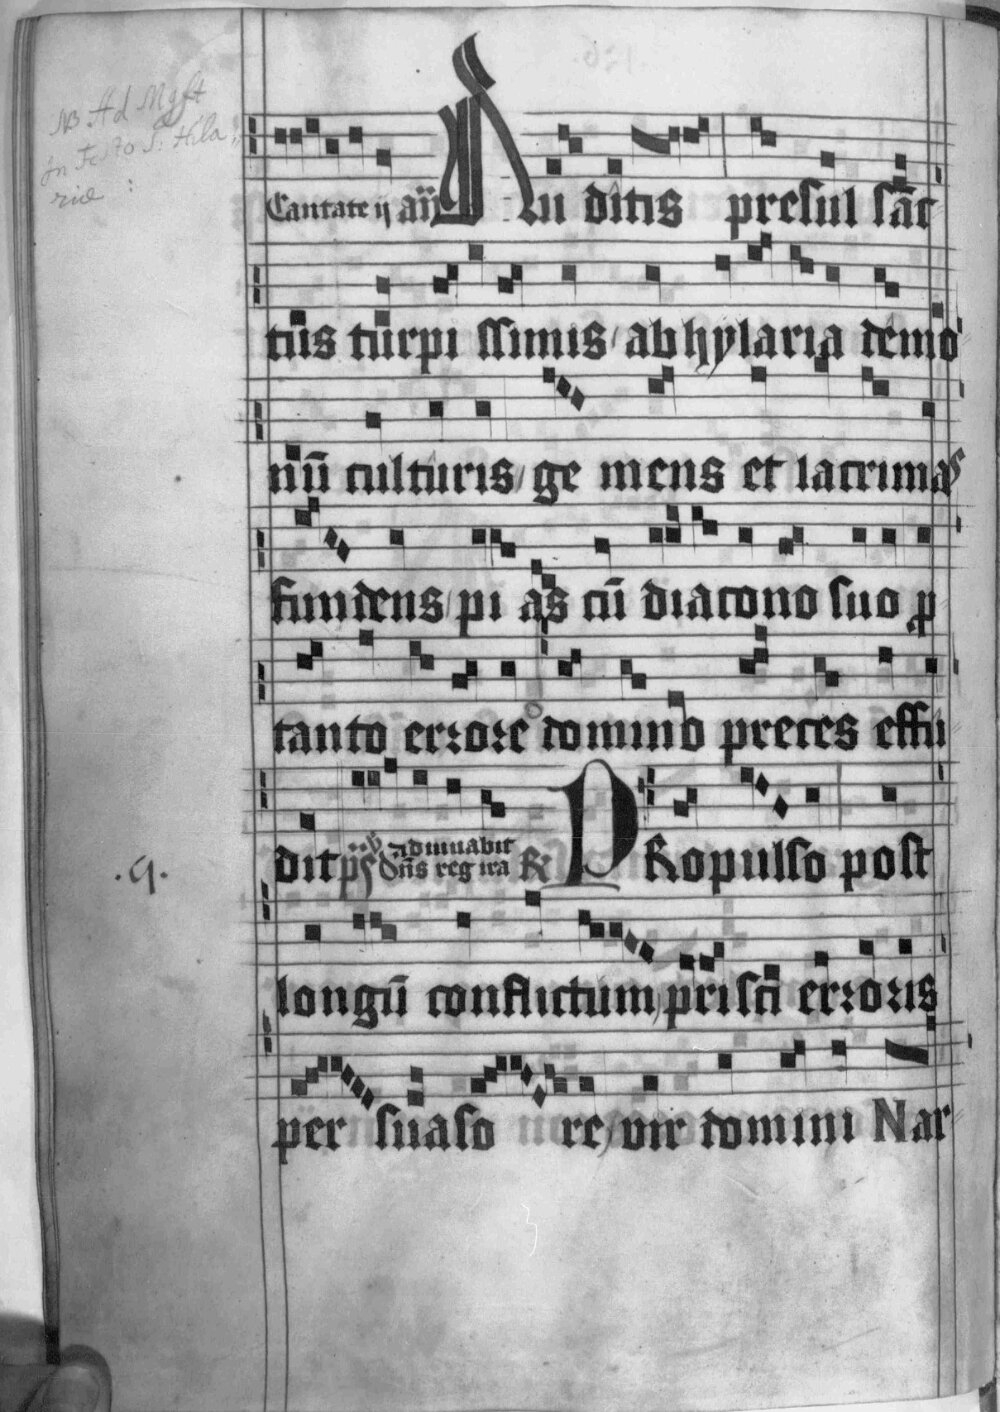 NB Ad
In Festo S. Hila
riae :
Cantate ij añ Au ditis presul sāc
tus turpi ssimis ab hylaria demo
nū culturis ge mens et lacrimas
fundens pi as cū diacono suo p
tanto errore domino preces effu
dit ps Adiuuabit
dn̄s reg ira R PRopulso post
longū conflictum prisci erroris
per suaso re vir domini Nar
.9.